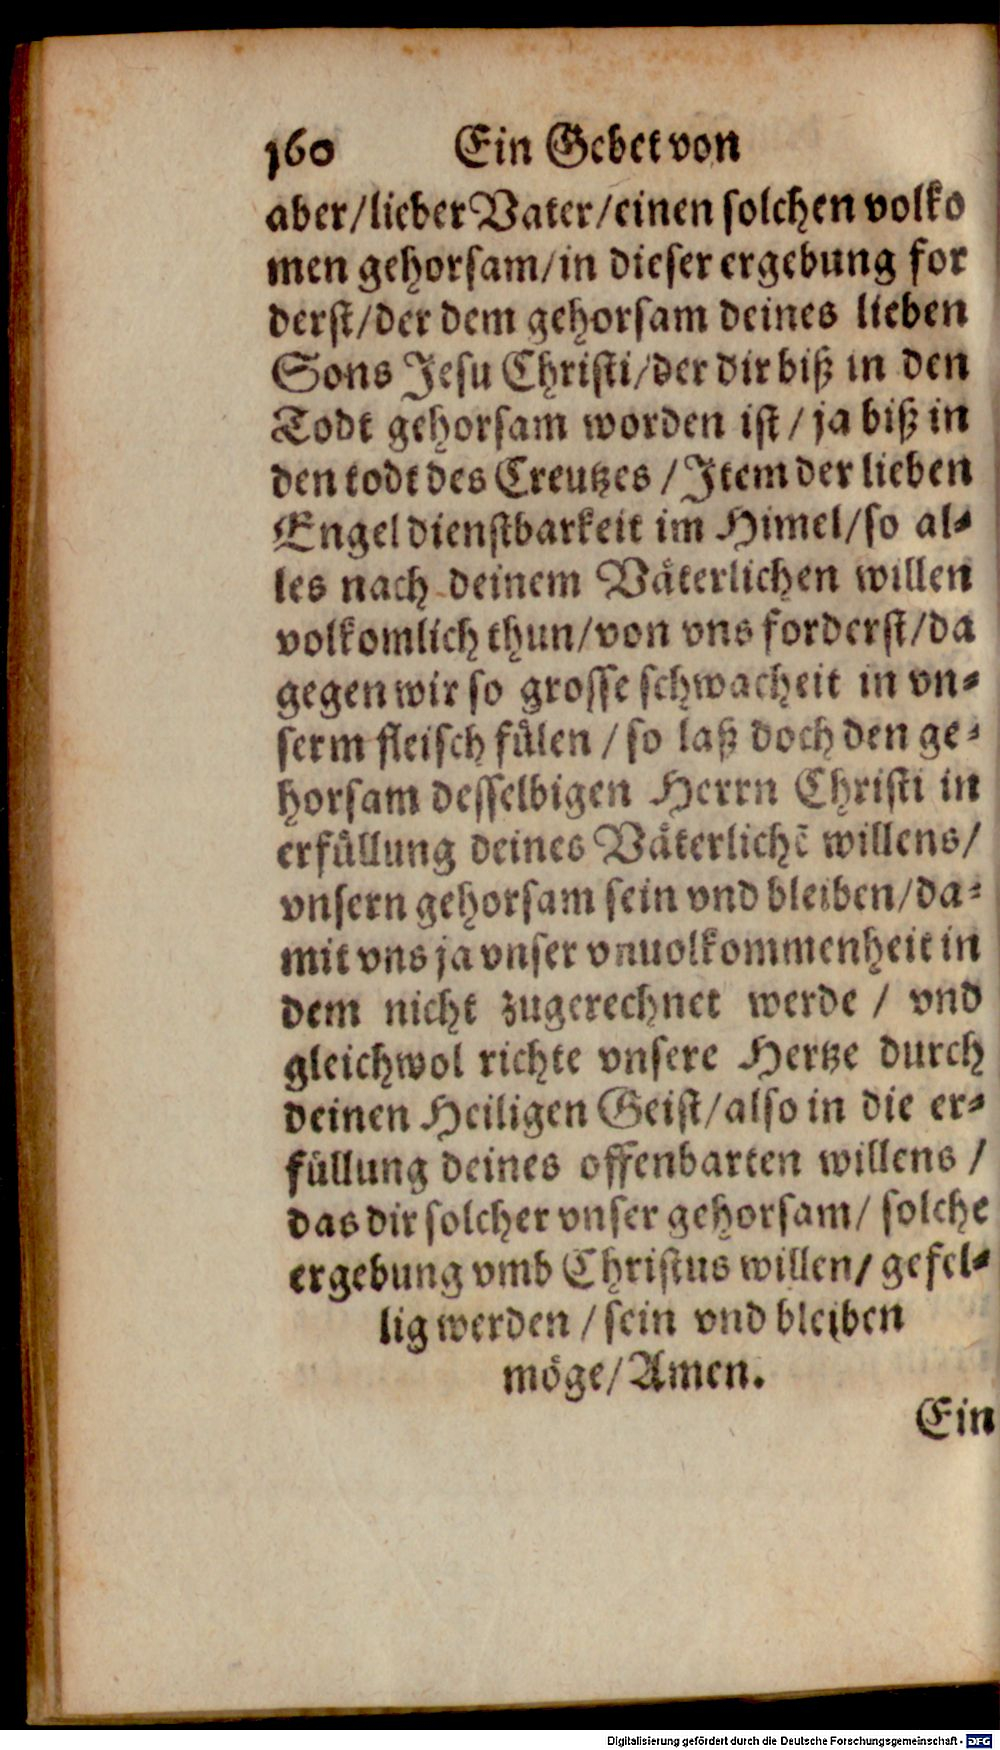 160 Ein Gebet von
aber/lieber Vater/einen solchen volko
men gehorsam/in dieser ergebung for
derst/der dem gehorsam deines lieben
Sons Jesu Christi/der dir biß in den
Todt gehorsam worden ist/ja biß in
den todt des Creutzes/Item der lieben
Engel dienstbarkeit im Himel/so al⸗
les nach deinem Våterlichen willen
volkomlich thun/von vns forderst/da
gegen wir so grosse schwacheit in vn⸗
serm fleisch fülen/so laß doch den ge⸗
horsam desselbigen Herrn Christi in
erfüllung deines Våterlichẽ willens/
vnsern gehorsam sein vnd bleiben/da⸗
mit vns ja vnser vnuolkommenheit in
dem nicht zugerechnet werde/ vnd
gleichwol richte vnsere Hertze durch
deinen Heiligen Geist/also in die er⸗
füllung deines offenbarten willens/
das dir solcher vnser gehorsam/ solche
ergebung vmb Christus willen/ gefel⸗
lig werden/sein vnd bleiben
möge/Amen.
Ein
Digitalisierung gefördert durch die Deutsche Forschungsgemeinschaft - DFG